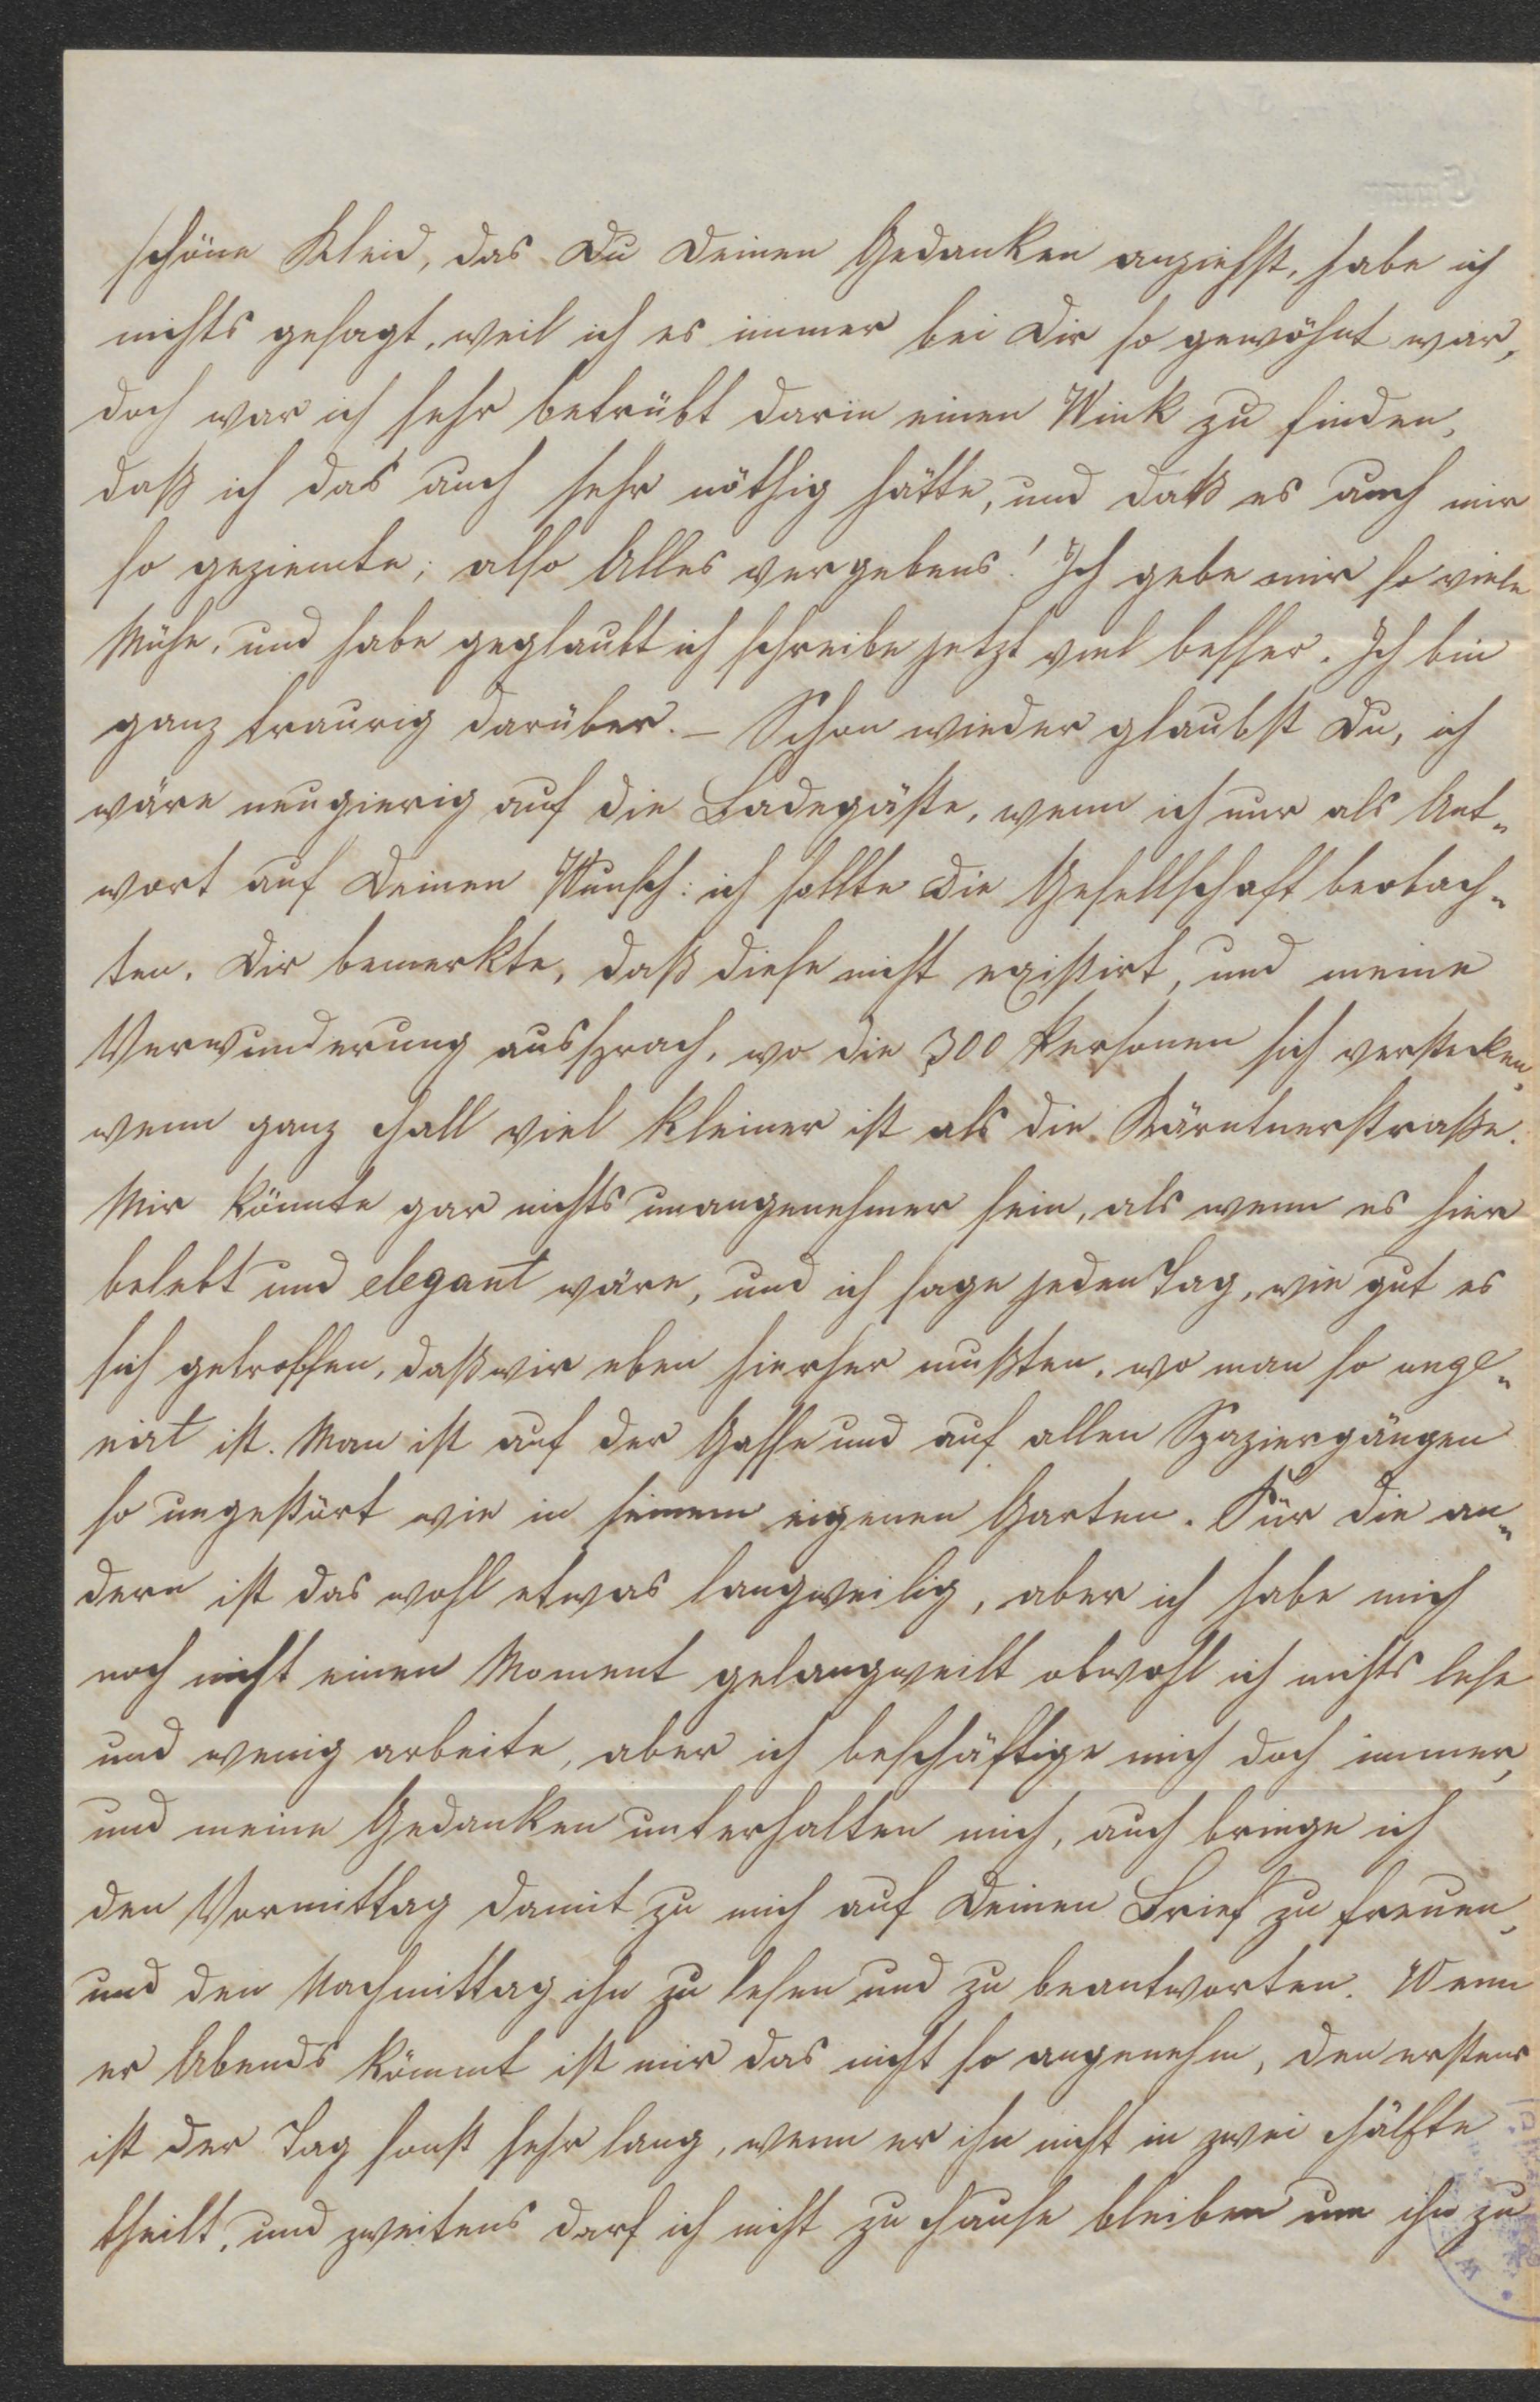 schöne Kleid, das Du Deinen Gedanken anziehst, habe ich
nichts gesagt, weil ich es immer bei Dir so gewöhnt war,
doch war ich sehr betrübt darin einen Wink zu finden,
daß ich das auch sehr nöthig hätte, und daß es auch mir
so geziemte; also Alles vergebens! Ich gebe mir so viele
Mühe, und habe geglaubt ich schreibe jetzt viel besser. Ich bin
ganz traurig darüber. – Schon wieder glaubst Du, ich
wäre neugierig auf die Badegäste, wenn ich nur als Ant„
wort auf Deinen Wunsch: ich sollte die Gesellschaft beobach„
ten, Dir bemerkte, daß diese nicht existirt, und meine
Verwunderung aussprach, wo die 300 Personen sich verstecken,
wenn ganz Hall viel kleiner ist als die Kärntnerstraße.
Mir könnte gar nichts unangenehmer sein, als wenn es hier
belebt und elegant wäre, und ich sage jeden Tag, wie gut es
sich getroffen, daß wir eben hierher mußten, wo man so unge„
nirt ist. Man ist auf der Gasse und auf allen Spaziergängen
so ungestört wie in seinem eigenen Garten. Für die an„
dern ist das wohl etwas langweilig, aber ich habe mich
noch nicht einen Moment gelangweilt obwohl ich nichts lese
und wenig arbeite, aber ich beschäftige mich doch immer,
und meine Gedanken unterhalten mich, auch bringe ich
den Vormittag damit zu mich auf Deinen Brief zu freuen,
und den Nachmittag ihn zu lesen und zu beantworten. Wenn
er Abends kömmt ist mir das nicht so angenehm, den erstens
ist der Tag sonst sehr lang, wenn er ihn nicht in zwei Hälfte
theilt, und zweitens darf ich nicht zu Hause bleiben um ihn zu